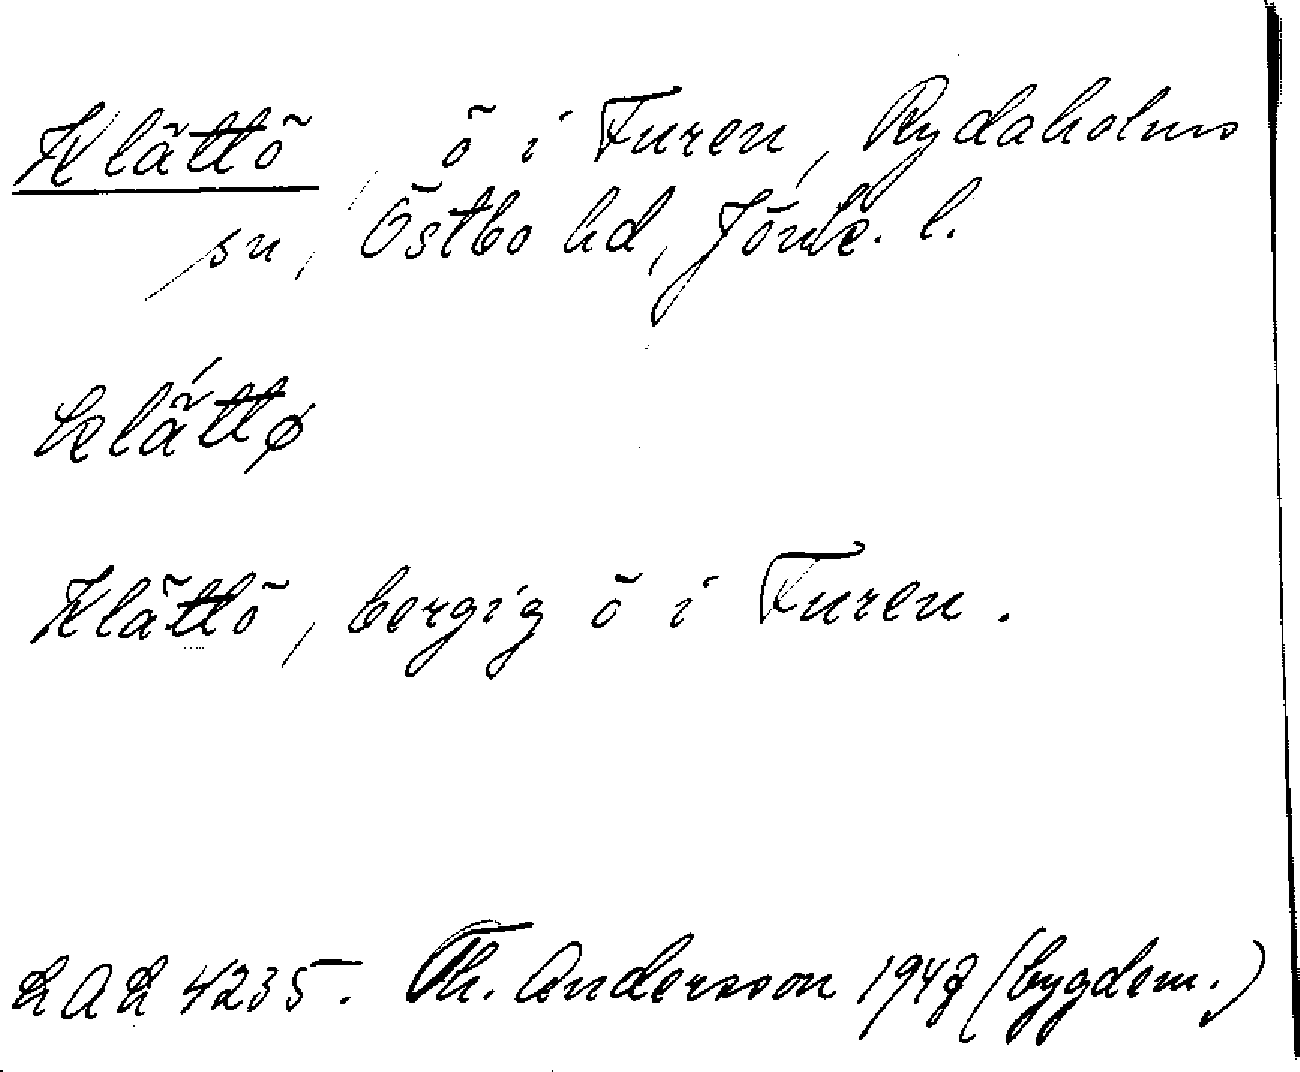 Klättö, ö i Furen, Rydaholms
sn, Östbo hd, Jönk. l.
klä́ttø
Klättö, bergig ö i Furen.
LAL 4235. Th. Andersson 1947 (bygdem.)